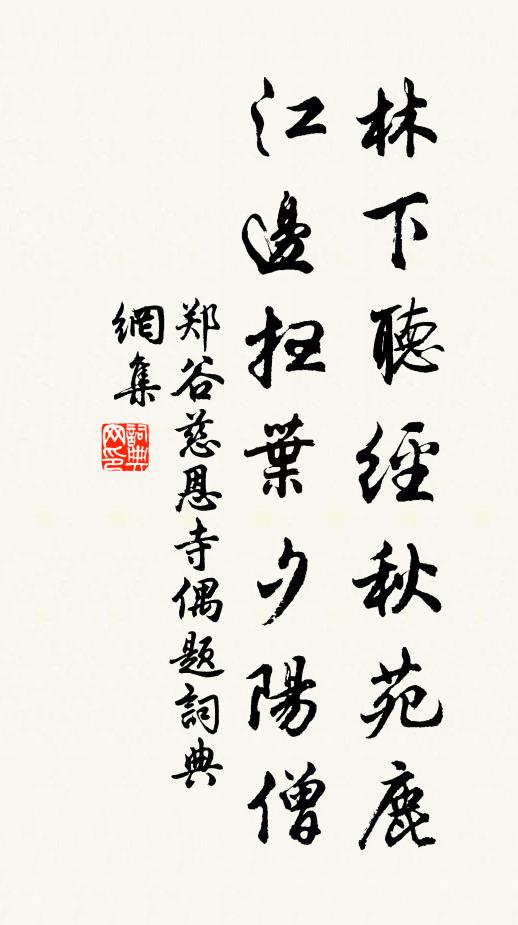 林下聽經秋苑鹿
江邊掃葉夕陽僧
郑谷慈恩寺偶题詞典
網集
詞典
网印